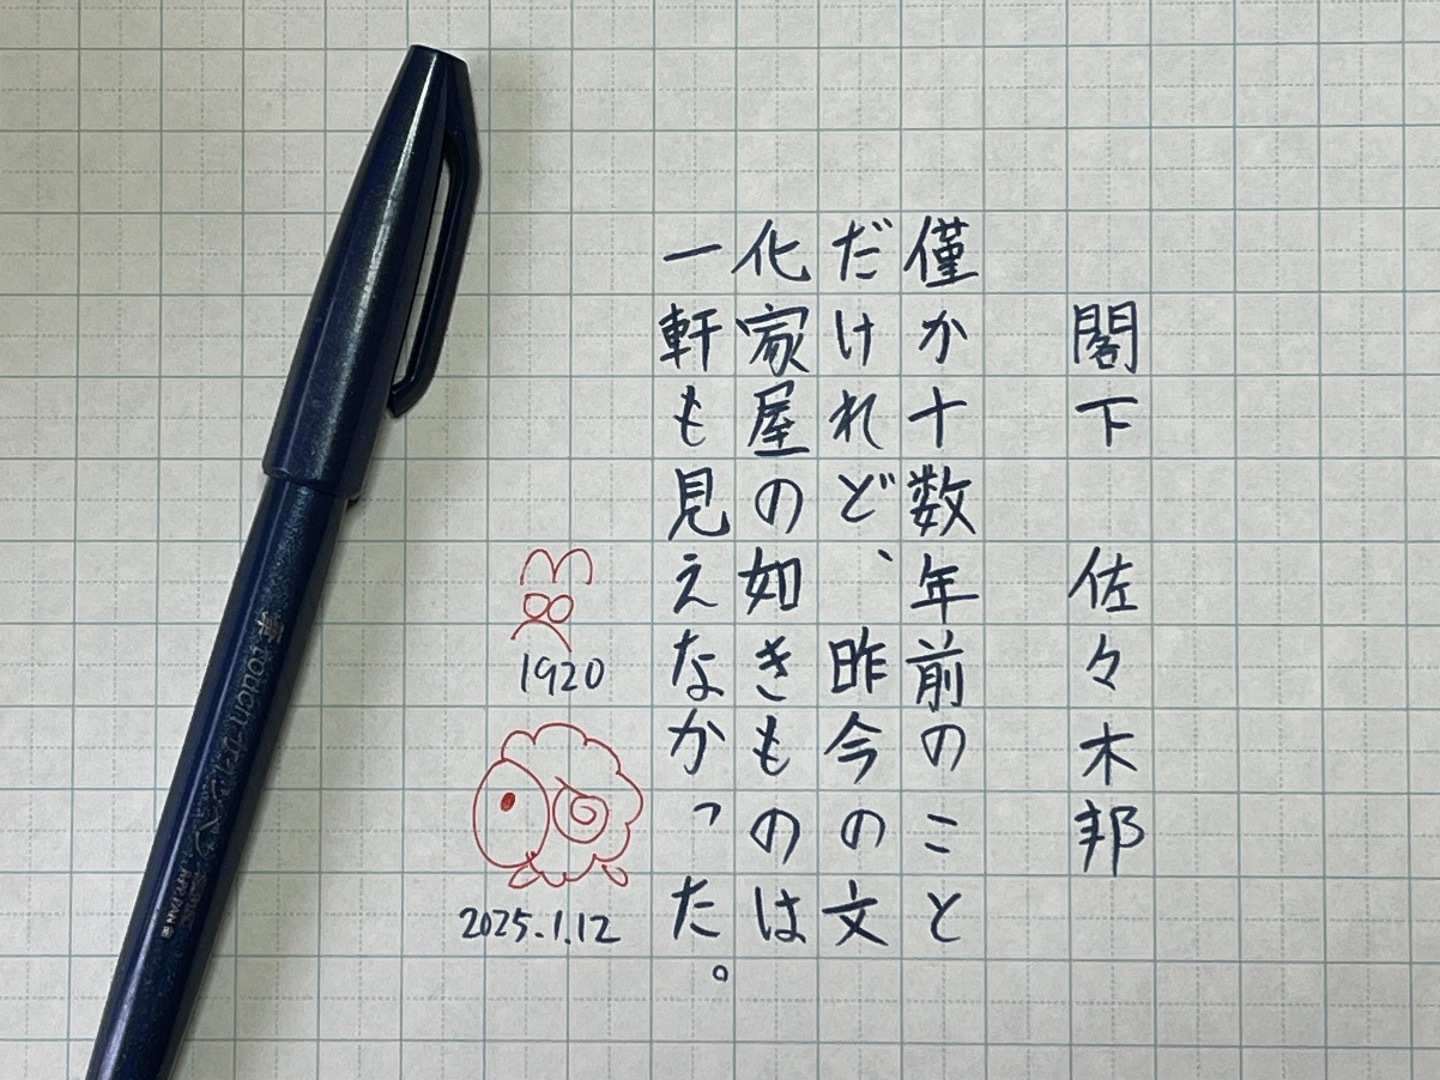 閣下 佐々木邦
僅か十数年前のこと
だけれど、昨今の文
化家屋の如きものは
一軒も見えなかった。
1920
2025.1.12
筆touchサインペン
JAPAN